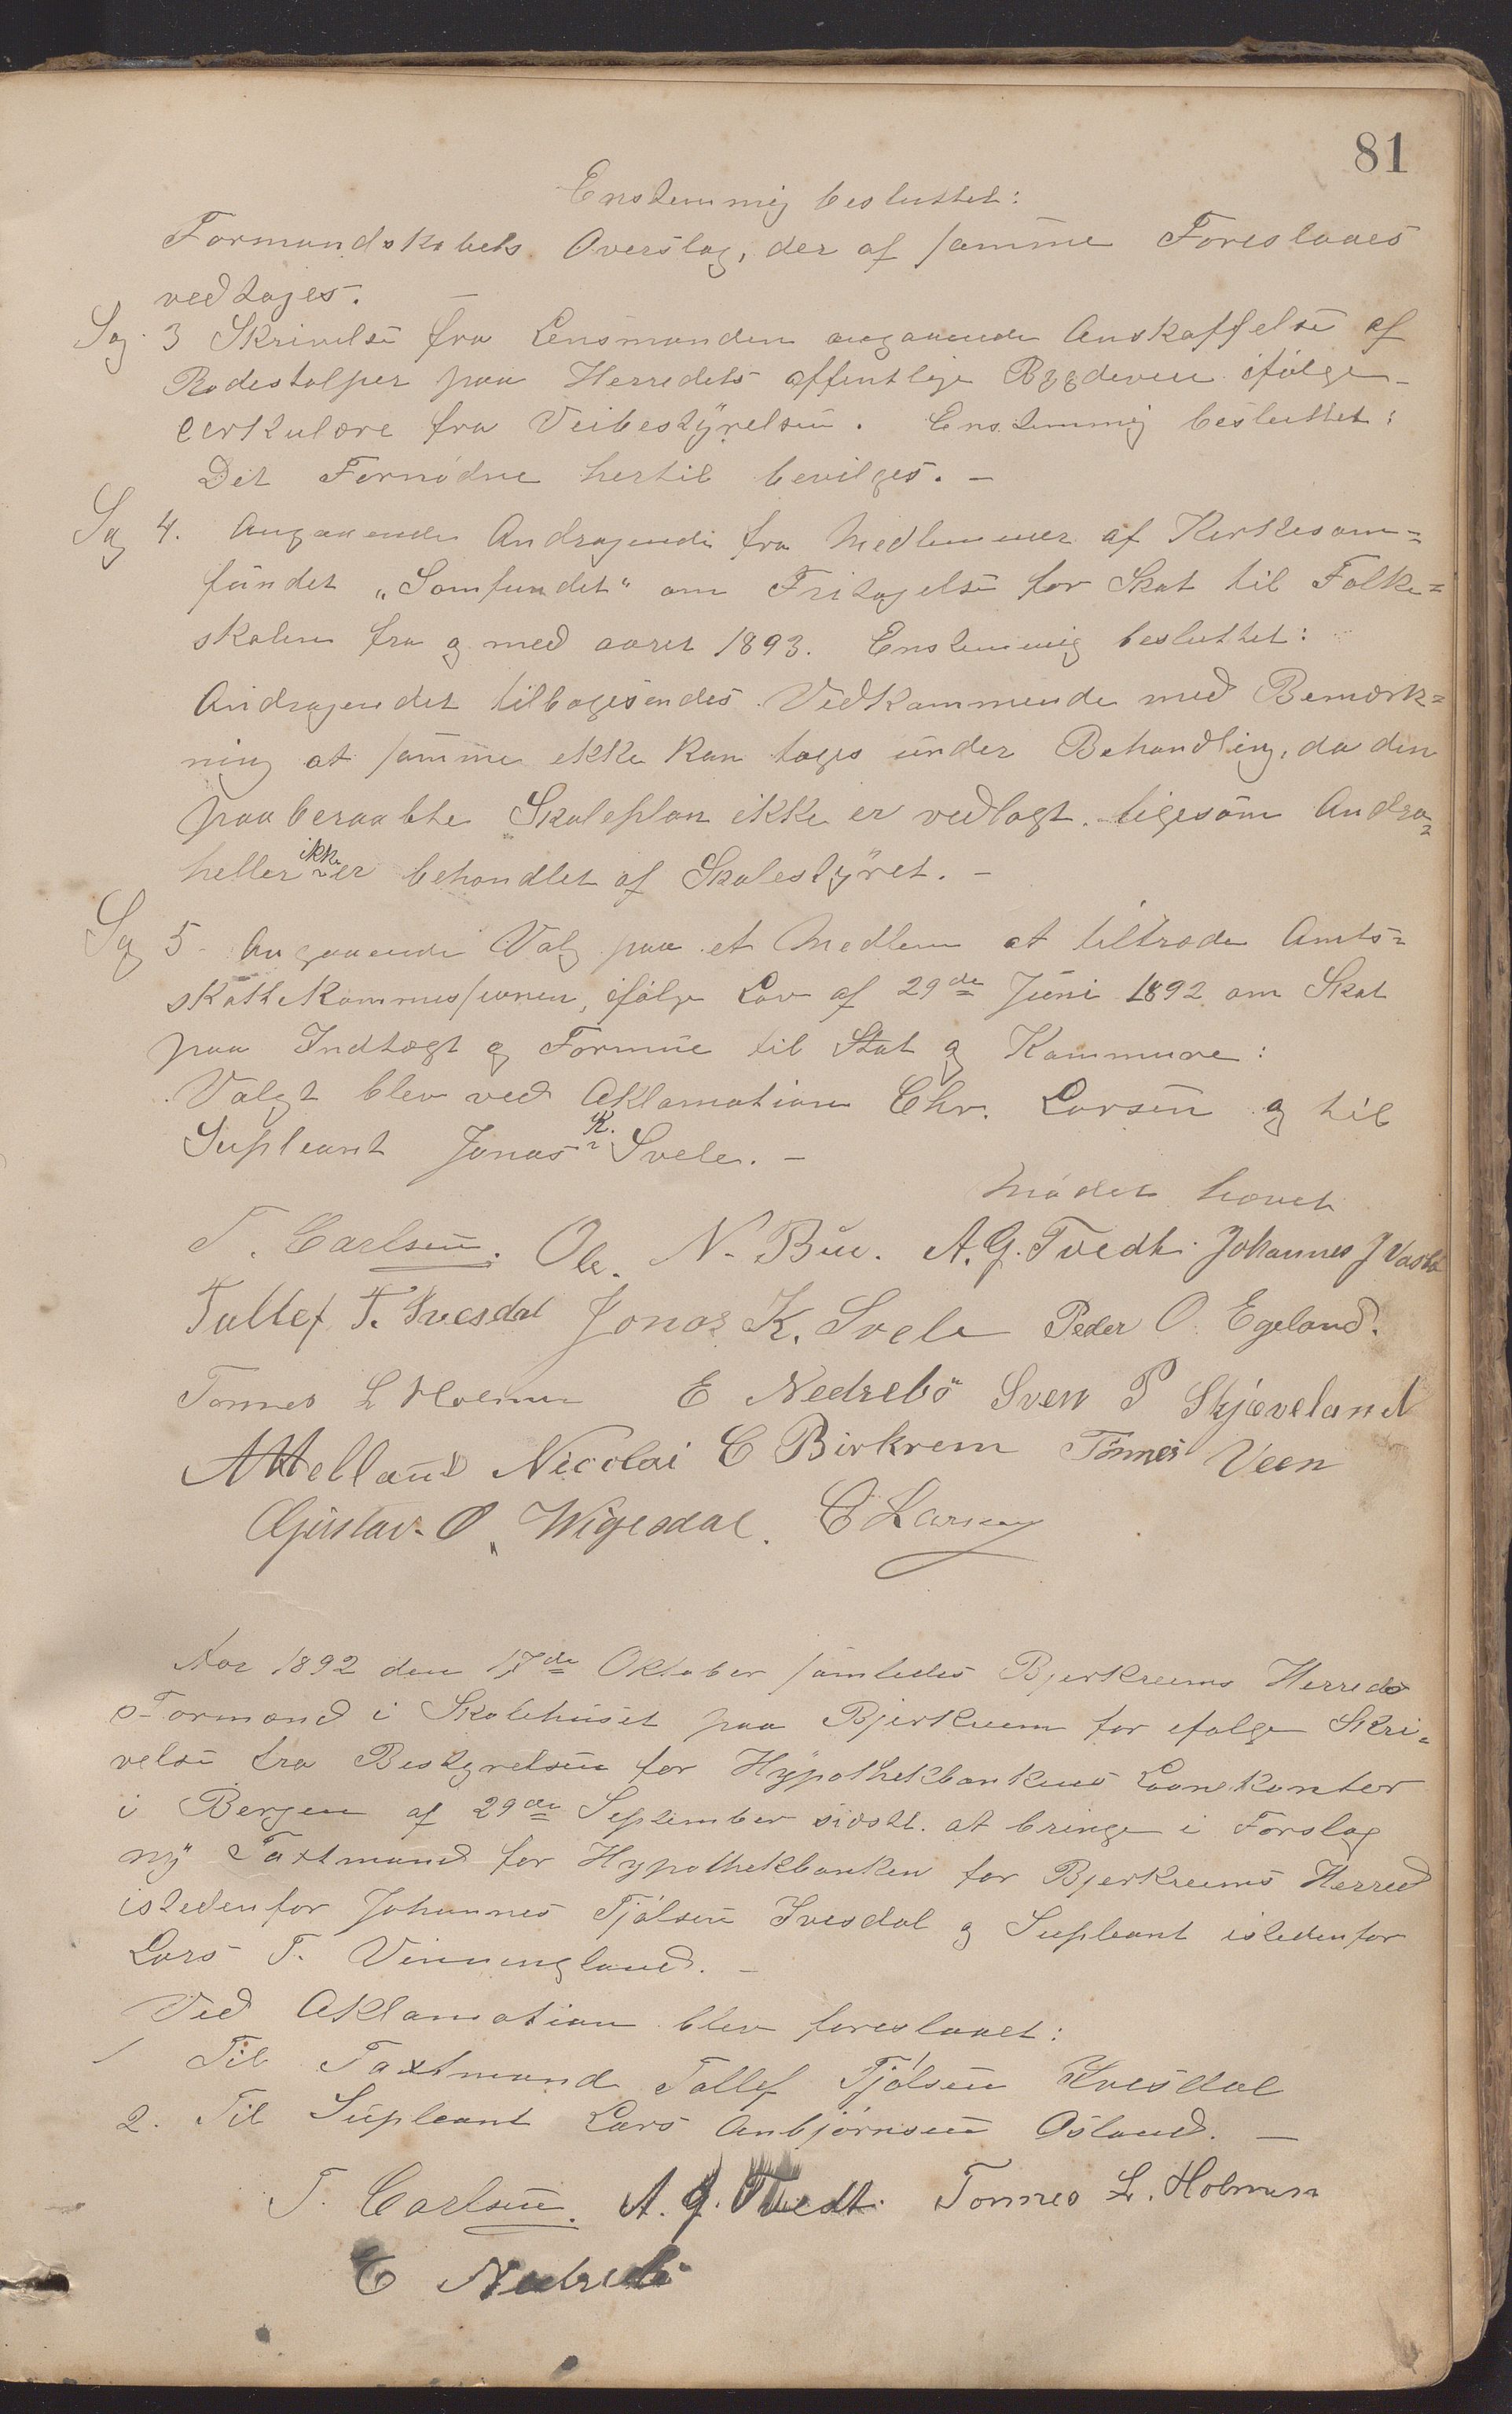 81
Enstemmig besluttet:
Formandskabets Overslag, der af samme Foreslaaes
vedtages. —
Sag 3 Skrivelse fra Lensmanden angaaende Anskaffelse af
Rodestolper paa Herredets offentlige Bygdeveie ifølge
cirkulære fra Veibestyrelsen. Enstemmig besluttet:
Det Fornødne hertil bevilges. —
Sag 4. Angaaende Andragende fra Medlemmer af Kirkesam=
fundet „Samfundet" om Fritagelse for Skat til Folke=
skolen fra og med aaret 1893. Enstemmig besluttet:
Andragendet tilbagesendes Vedkommende med Bemærk=
ning at samme ikke kan tages under Behandling, da den
paaberaabte Skoleplan ikke er vedlagt. ligesom Andra=
heller ikke er behandlet af Skolestyret. —
Sag 5 Angaaende Valg paa et Medlem at tiltræde Amts=
skattekommissionen, ifølge Lov af 29de Juni 1892 om Skat
paa Indtægt og Formue til Stat og Kommune:
Valgt blev ved Aklamation Chr. Larsen og til
Supleant Jonas K. Svele. —
Mødet hævet
T. Carlsen. Ole. N. Bue. A. G. Tvedt. Johannes J
Tallef T. Ivesdal Jonas K. Svele Peder O. Egeland.
Tønnes L Holmen E Nedrebö Sven P Skjæveland
Nicolai C Birkrem Tönnes Veen
Gustav. O. Wigesdal. C Larsen
Aar 1892 den 17de Oktober samledes Bjerkreims Herreds
Formand i Skolehuset paa Bjerkreim for ifølge Skri=
velse fra Bestyrelsen for Hypothekbankens Laanekontor
i Bergen af 29de September sidstl. at bringe i Forslag
ny Taxtmand for Hypothekbanken for Bjerkreims Herred
istedenfor Johannes Tjølsen Ivesdal og Supleant istedenfor
Lars T. Vinningland. —
Ved Aklamation blev foreslaaet:
1 Til Taxtmand Tallef Tjølsen Ivesdal
2. Til Supleant Lars Anbjørnsen Osland. —
T. Carlsen. A. G. Tvedt. Tønnes L. Holmen
E Nedrebö